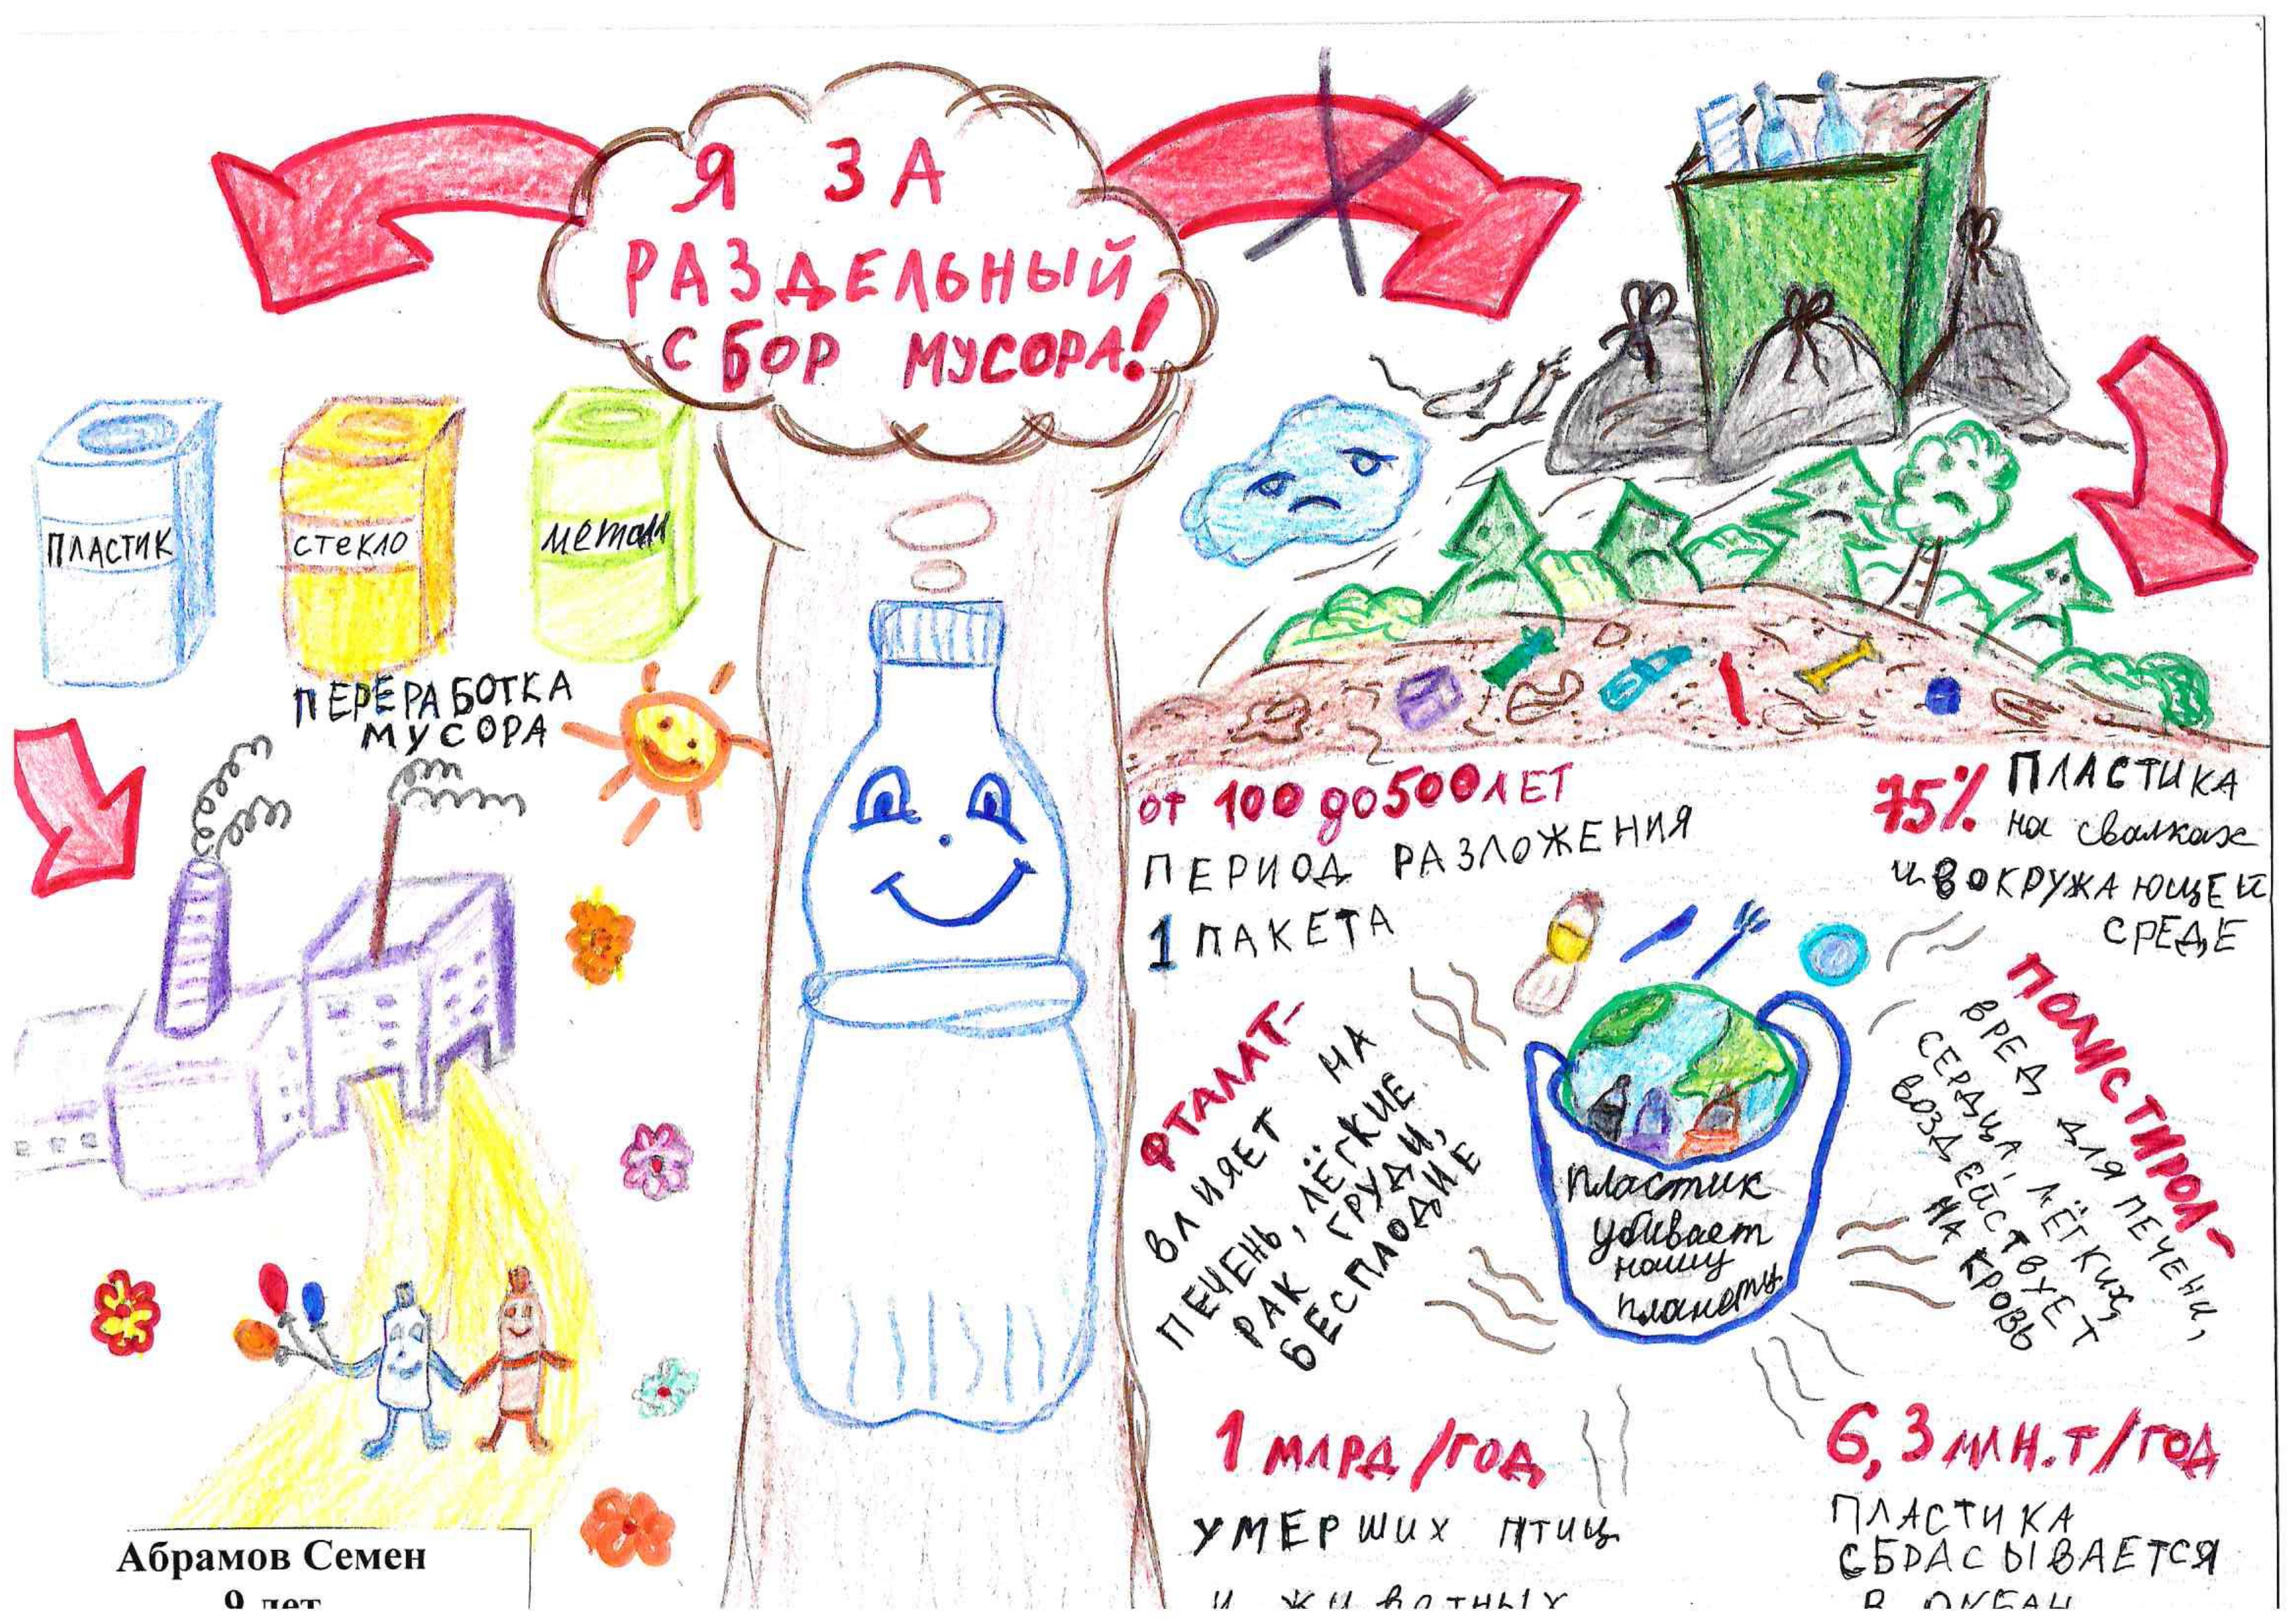 Я ЗА
РАЗДЕЛЬНЫЙ
СБОР МУСОРА!
ПЛАСТИК
СТЕКЛО
металл
ПЕРЕРАБОТКА
МУСОРА
от 100 до 500 ЛЕТ
ПЕРИОД РАЗЛОЖЕНИЯ
1 ПАКЕТА
75% ПЛАСТИКА
на свалках
и В ОКРУЖАЮЩЕЙ
СРЕДЕ
ФТАЛАТ-
ВЛИЯЕТ НА
ПЕЧЕНЬ, ЛЁГКИЕ
РАК ГРУДИ,
БЕСПЛОДИЕ
Пластик
убивает
нашу
планету
ПОЛИСТИРОЛ-
ВРЕД ДЛЯ ПЕЧЕНИ,
СЕРДЦА, ЛЁГКИХ,
ВОЗДЕЙСТВУЕТ
НА КРОВЬ
1 МЛРД/ГОД
УМЕРШИХ ПТИЦ
И ЖИВОТНЫХ
6,3 МЛН.Т/ГОД
ПЛАСТИКА
СБРАСЫВАЕТСЯ
В ОКЕАН
Абрамов Семен
9 лет